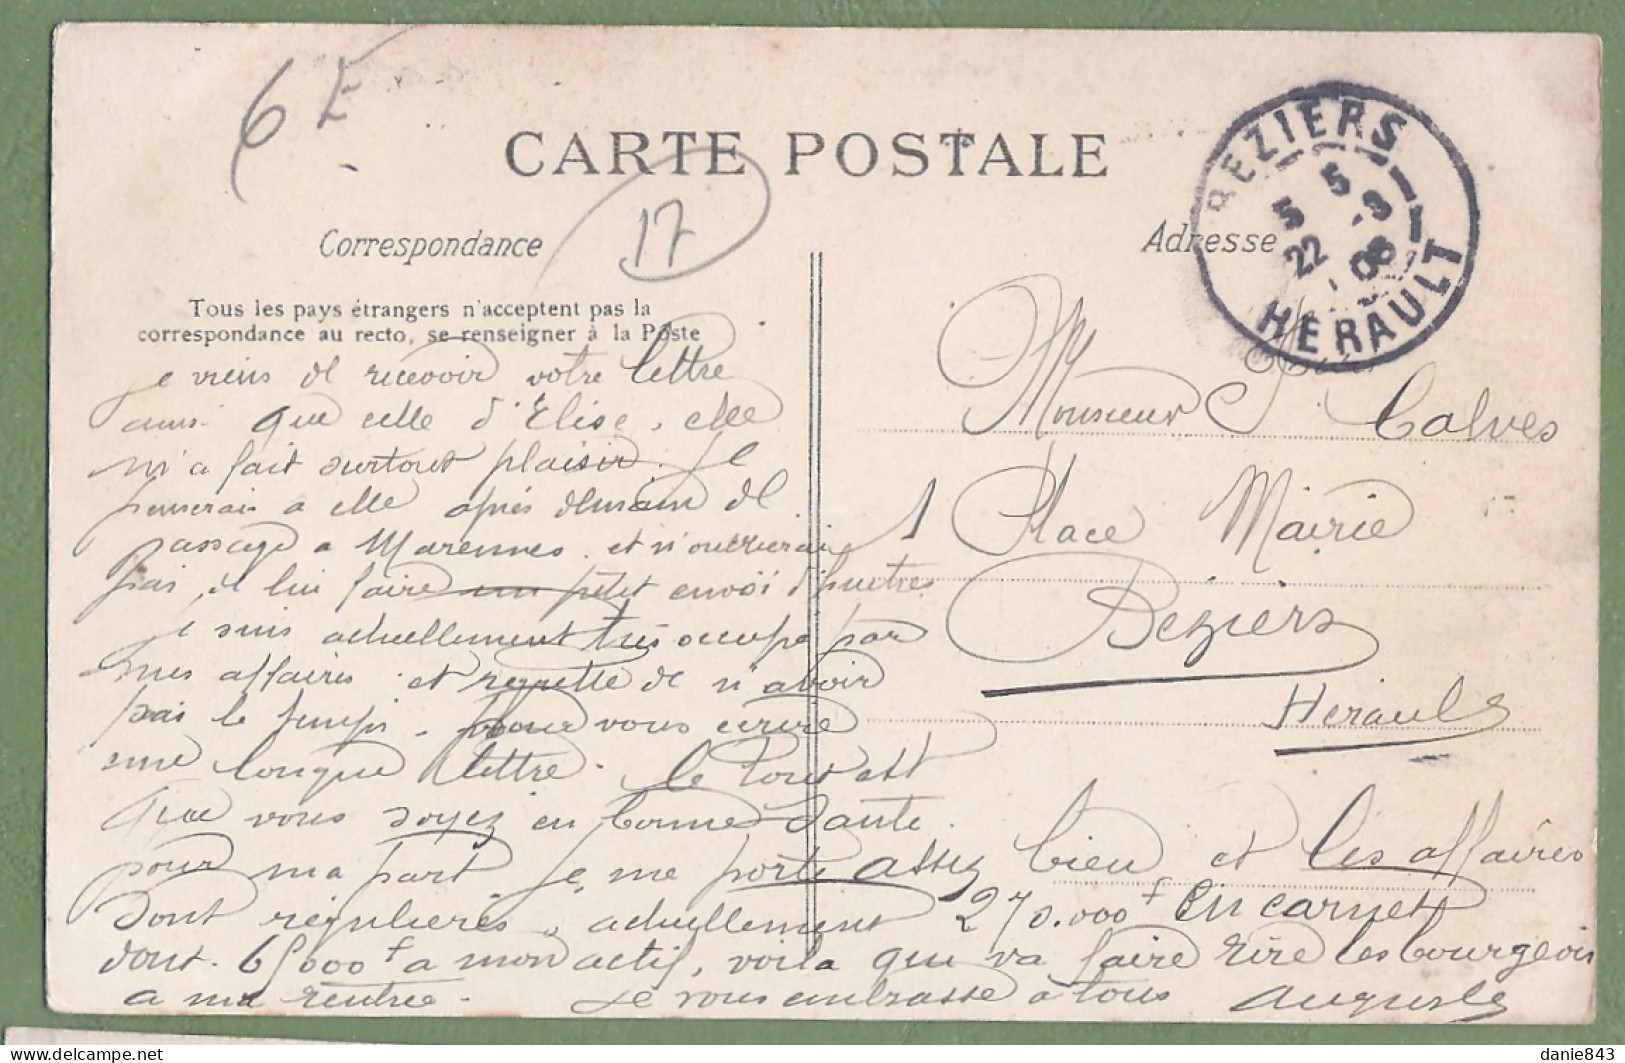 6 E
CARTE POSTALE
17
Correspondance
Adresse
BEZIERS
5 5
22 -3
06
HERAULT
Tous les pays étrangers n'acceptent pas la
correspondance au recto, se renseigner à la Poste
Je viens de recevoir votre lettre
ainsi que celle d'Elise, elle
m'a fait surtout plaisir. Je
penserai a elle après demain de
passage a Marennes. et n'oublierai
pas de lui faire un petit envoi d'huitres
Je suis actuellement très occupé par
mes affaires et regrette de n'avoir
pas le temps pour vous écrire
une longue lettre. Le tout est
que vous soyez en bonne Santé.
pour ma part, je me porte assez bien et les affaires
sont régulières, actuellement 270.000 f en carnet
dont 65000 f a mon actif, voila que va faire rire les bourgeois
a ma rentrée. Je vous embrasse a tous Auguste
Monsieur Calves
1 Place Mairie
Béziers
Hérault
danie843